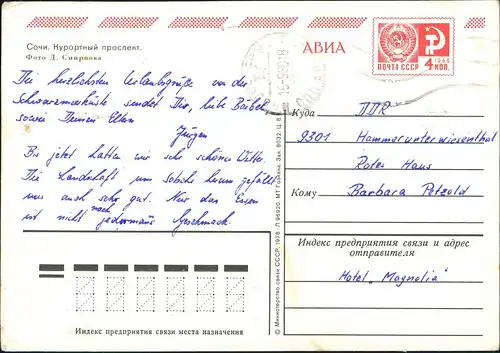 Сочи. Курортный проспект.
Фото Д. Смирнова
АВИА
ПОЧТА СССР
1966
4 КОП.
Die herzlichsten Urlaubsgrüße von der
Schwarzmeerküste sendet Dir, liebe Bärbel
sowie Deinen Eltern
Jürgen
Bis jetzt hatten wir sehr schönes Wetter.
Die Landschaft um Sotschi herum gefällt
uns auch sehr gut. Nur das Essen
ist nicht nach jedermanns Geschmack.
Куда DDR
9301 Hammerunterwiesenthal
Rotes Haus
Кому Barbara Petzold
Индекс предприятия связи и адрес
отправителя
Hotel „Magnolia"
Индекс предприятия связи места назначения
© Министерство связи СССР, 1978. Л 96920. МТ Гознака. Зак. 8032. Ц. 8 к.